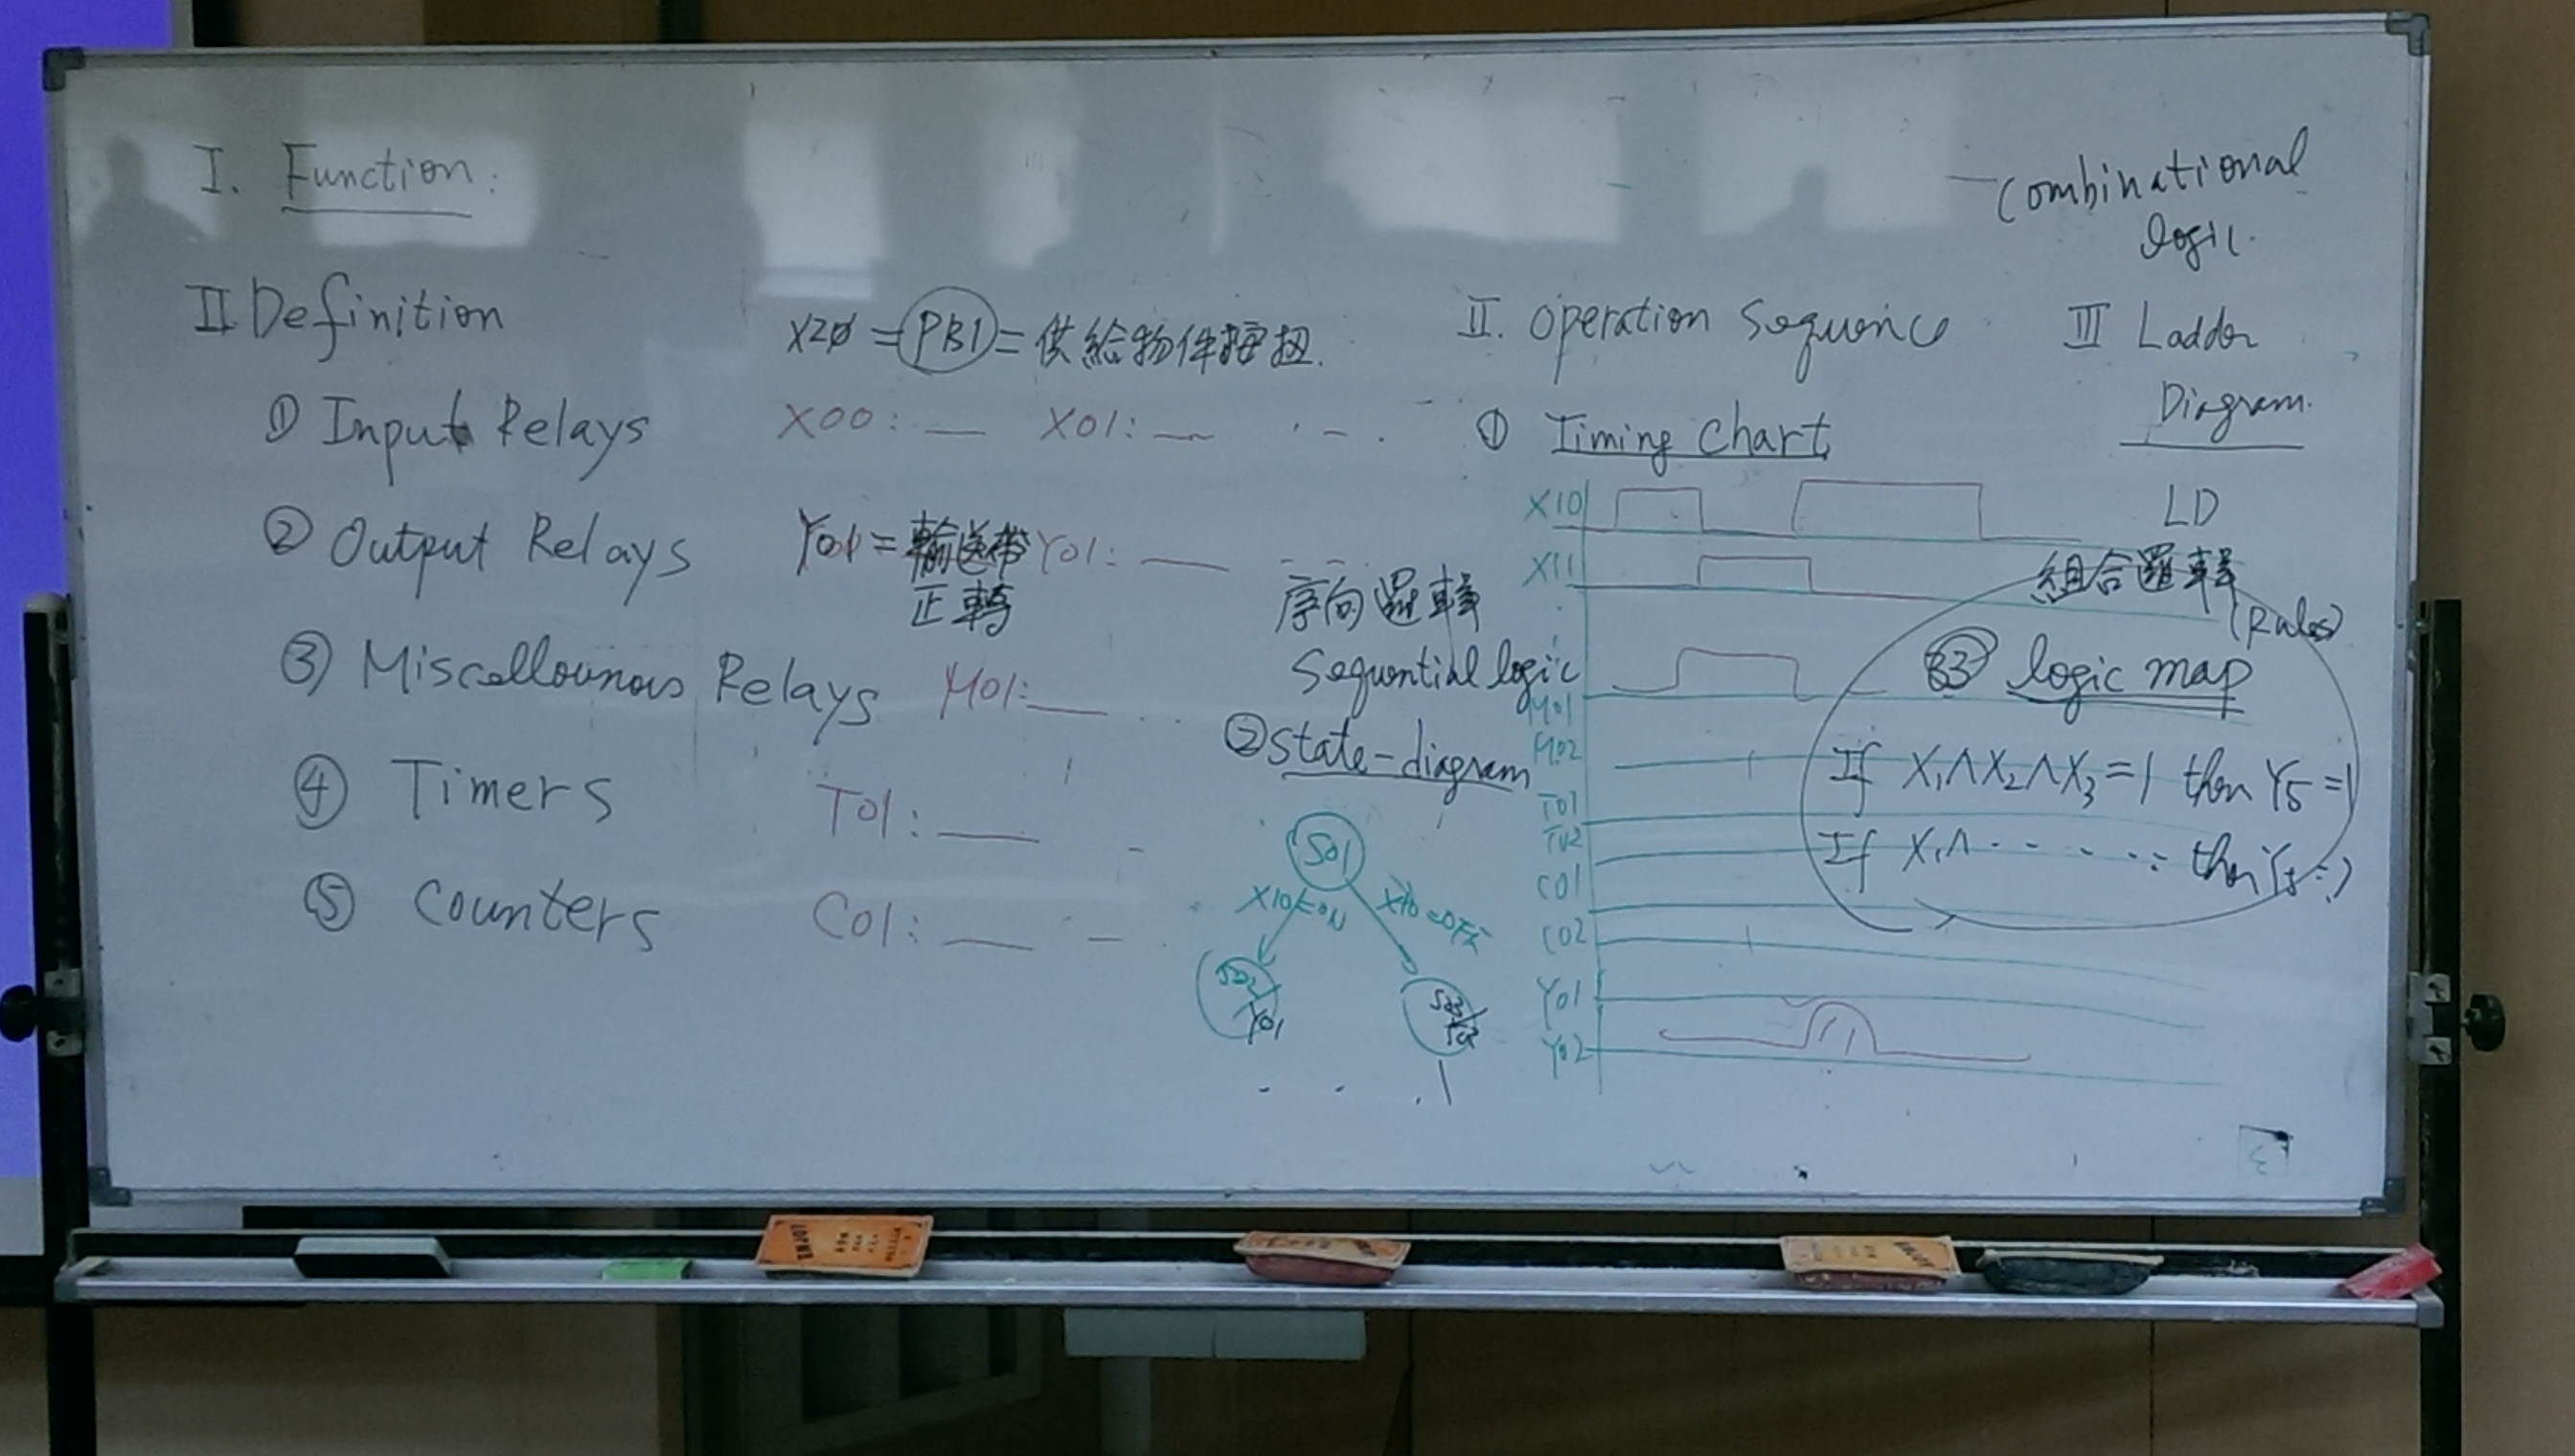 I. Function:
II Definition
X20 = PB1 = 供給物件按扭.
① Input Relays X00: X01:
② Output Relays Y01 = 輸送帶 Y01:
正轉
③ Miscellounous Relays M01:
④ Timers T01:
⑤ Counters C01:
II. Operation Sequence
① Timing Chart
X10
X11
序向邏輯
Sequential logic
② State-diagram
S01
X10=ON X10=OFF
S02
Y01
S03
M01
M02
T01
T02
C01
C02
Y01
Y02
Combinational
logic.
III Ladder
Diagram.
LD
組合邏輯
(Rules)
③ logic map
If X1∧X2∧X3=1 then Y5=1
If X1∧ - - - - - : then